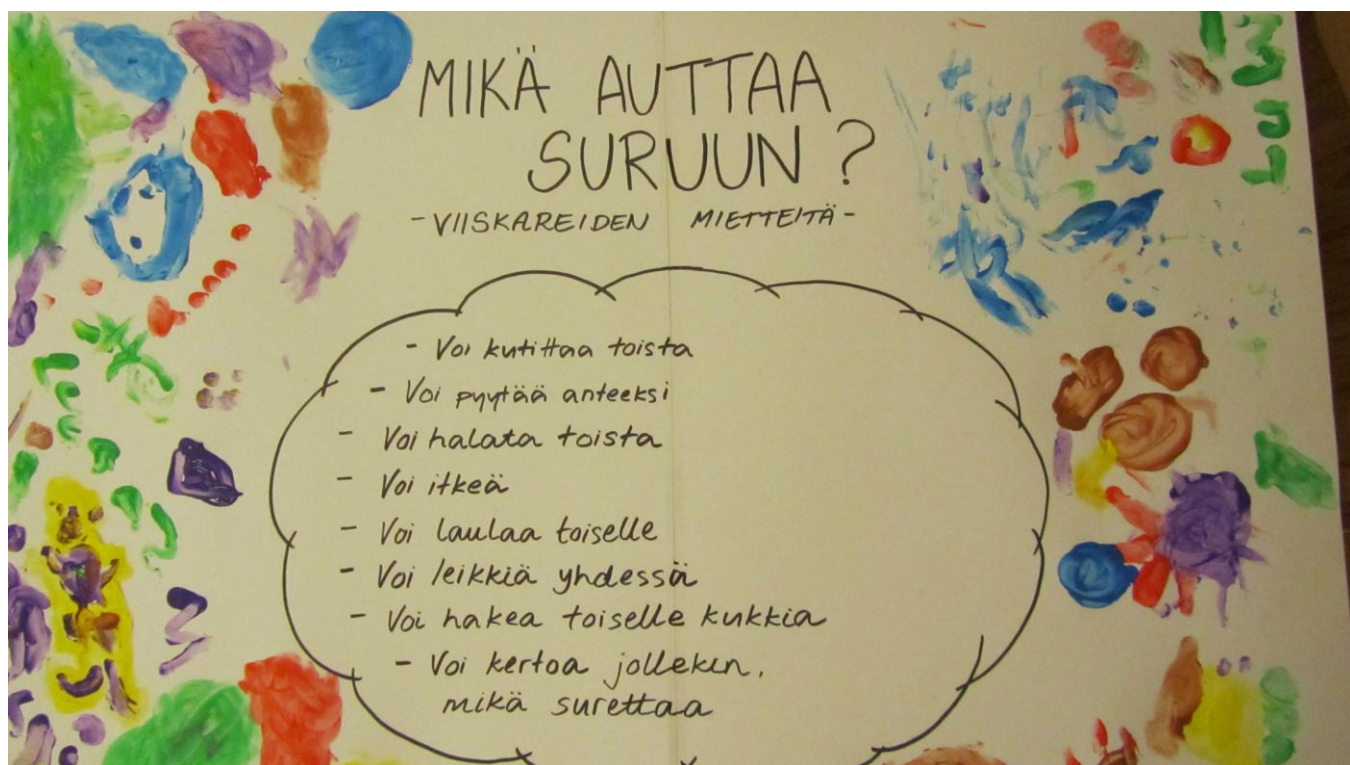 MIKÄ AUTTAA
SURUUN?
-VIISKAREIDEN MIETTEITÄ-
- Voi kutittaa toista
- Voi pyytää anteeksi
- Voi halata toista
- Voi itkeä
- Voi laulaa toiselle
- Voi leikkiä yhdessä
- Voi hakea toiselle kukkia
- Voi kertoa jollekin,
mikä surettaa